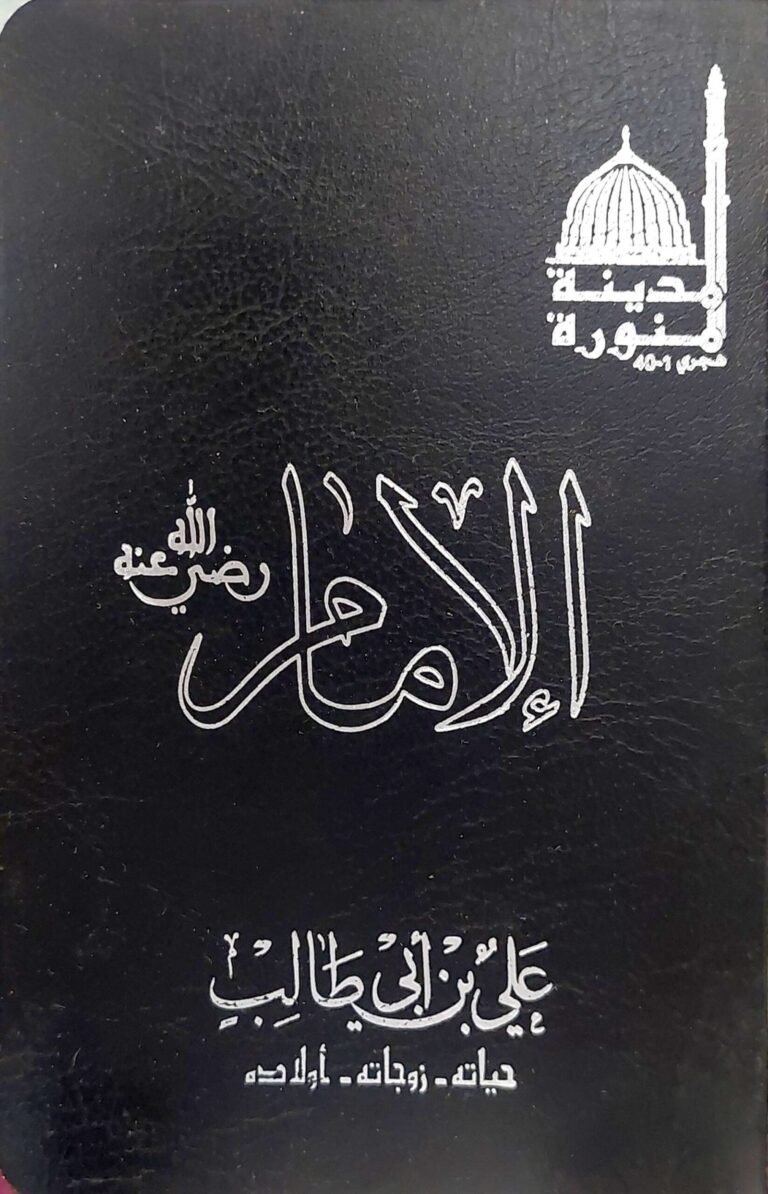 المدينة
المنورة
هجري 1-40
الإمام
رضي الله عنه
علي بن أبي طالب
حياته - زوجاته - أولاده